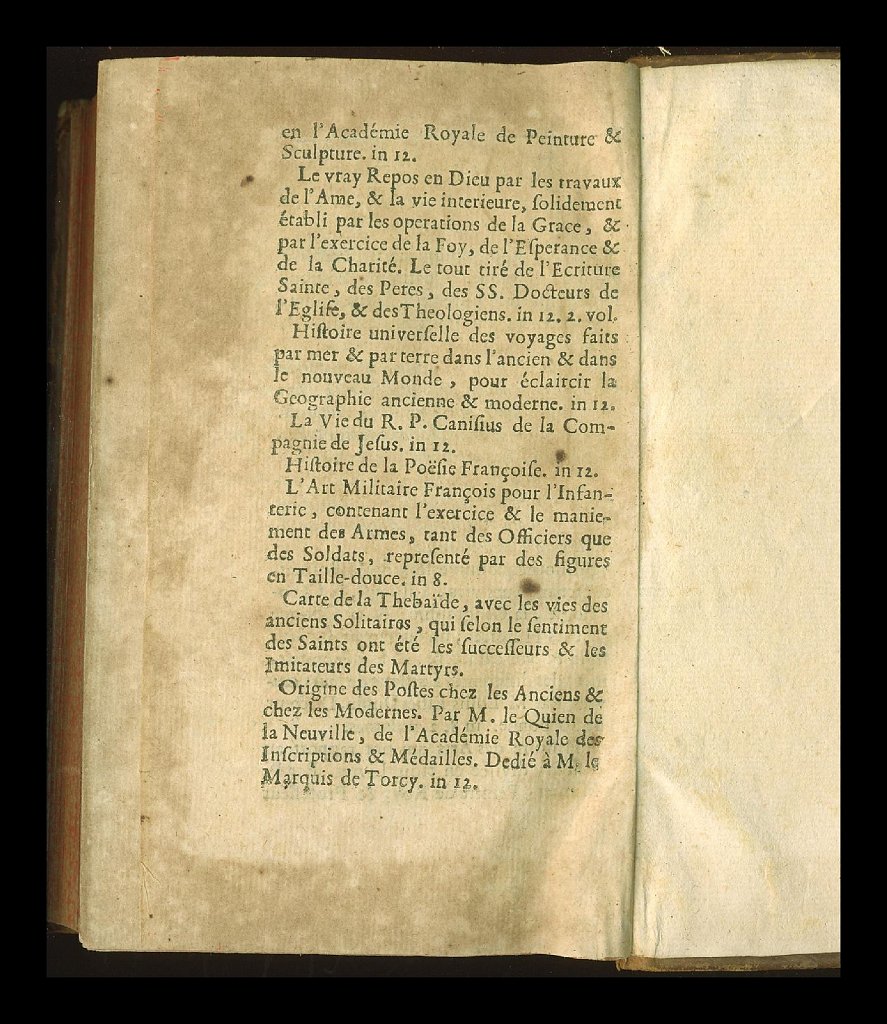 en l'Académie Royale de Peinture &
Sculpture. in 12.
Le vray Repos en Dieu par les travaux
de l'Ame, & la vie interieure, ſolidement
établi par les operations de la Grace, &
par l'exercice de la Foy, de l'Eſperance &
de la Charité. Le tout tiré de l'Ecriture
Sainte, des Peres, des SS. Docteurs de
l'Egliſe, & des Theologiens. in 12. 2. vol.
Hiſtoire univerſelle des voyages faits
par mer & par terre dans l'ancien & dans
le nouveau Monde, pour éclaircir la
Geographie ancienne & moderne. in 12.
La Vie du R. P. Caniſius de la Com-
pagnie de Jeſus. in 12.
Hiſtoire de la Poëſie Françoiſe. in 12.
L'Art Militaire François pour l'Infan-
terie, contenant l'exercice & le manie-
ment des Armes, tant des Officiers que
des Soldats, repreſenté par des figures
en Taille-douce. in 8.
Carte de la Thebaïde, avec les vies des
anciens Solitaires, qui ſelon le ſentiment
des Saints ont été les ſucceſſeurs & les
Imitateurs des Martyrs.
Origine des Poſtes chez les Anciens &
chez les Modernes. Par M. le Quien de
la Neuville, de l'Académie Royale des
Inſcriptions & Médailles. Dedié à M. le
Marquis de Torcy. in 12.